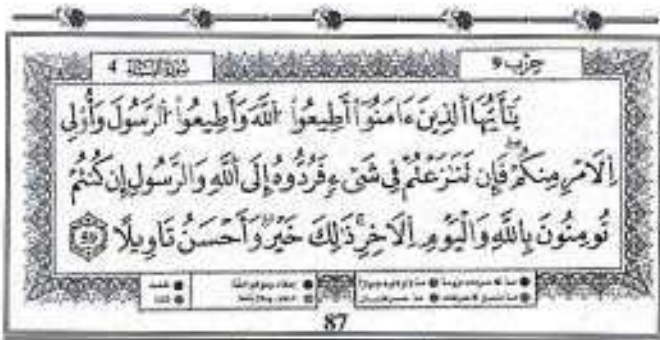 سُورَةُ النِّسَاء 4
حِزْب 9
يَٰٓأَيُّهَا اَ۬لذِينَ ءَامَنُوٓاْ أَطِيعُواْ اُ۬للَّهَ وَأَطِيعُواْ اُ۬لرَّسُولَ وَأُوْلِے
اِ۬لَامْرِ مِنكُمْۖ فَإِن تَنَٰزَعْتُمْ فِے شَےْءٖ فَرُدُّوهُ إِلَى اَ۬للَّهِ وَالرَّسُولِ إِن كُنتُمْ
تُومِنُونَ بِاللَّهِ وَالْيَوْمِ اِ۬لَاخِرِۖ ذَٰلِكَ خَيْرٞ وَأَحْسَنُ تَاوِيلًا
87